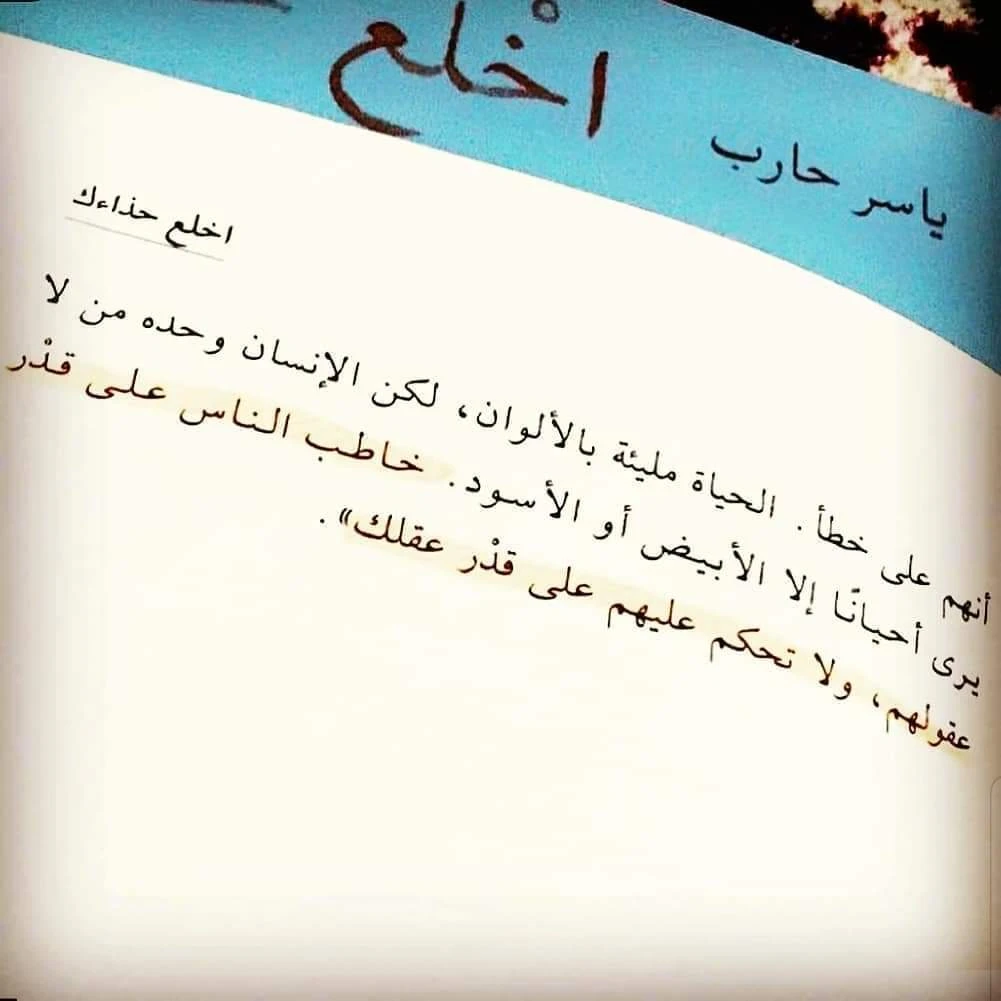 اخْلع
ياسر حارب
اخلع حذاءك
أنهم على خطأ. الحياة مليئة بالألوان، لكن الإنسان وحده من لا
يرى أحيانًا إلا الأبيض أو الأسود. خاطب الناس على قدْر
عقولهم، ولا تحكم عليهم على قدْر عقلك».